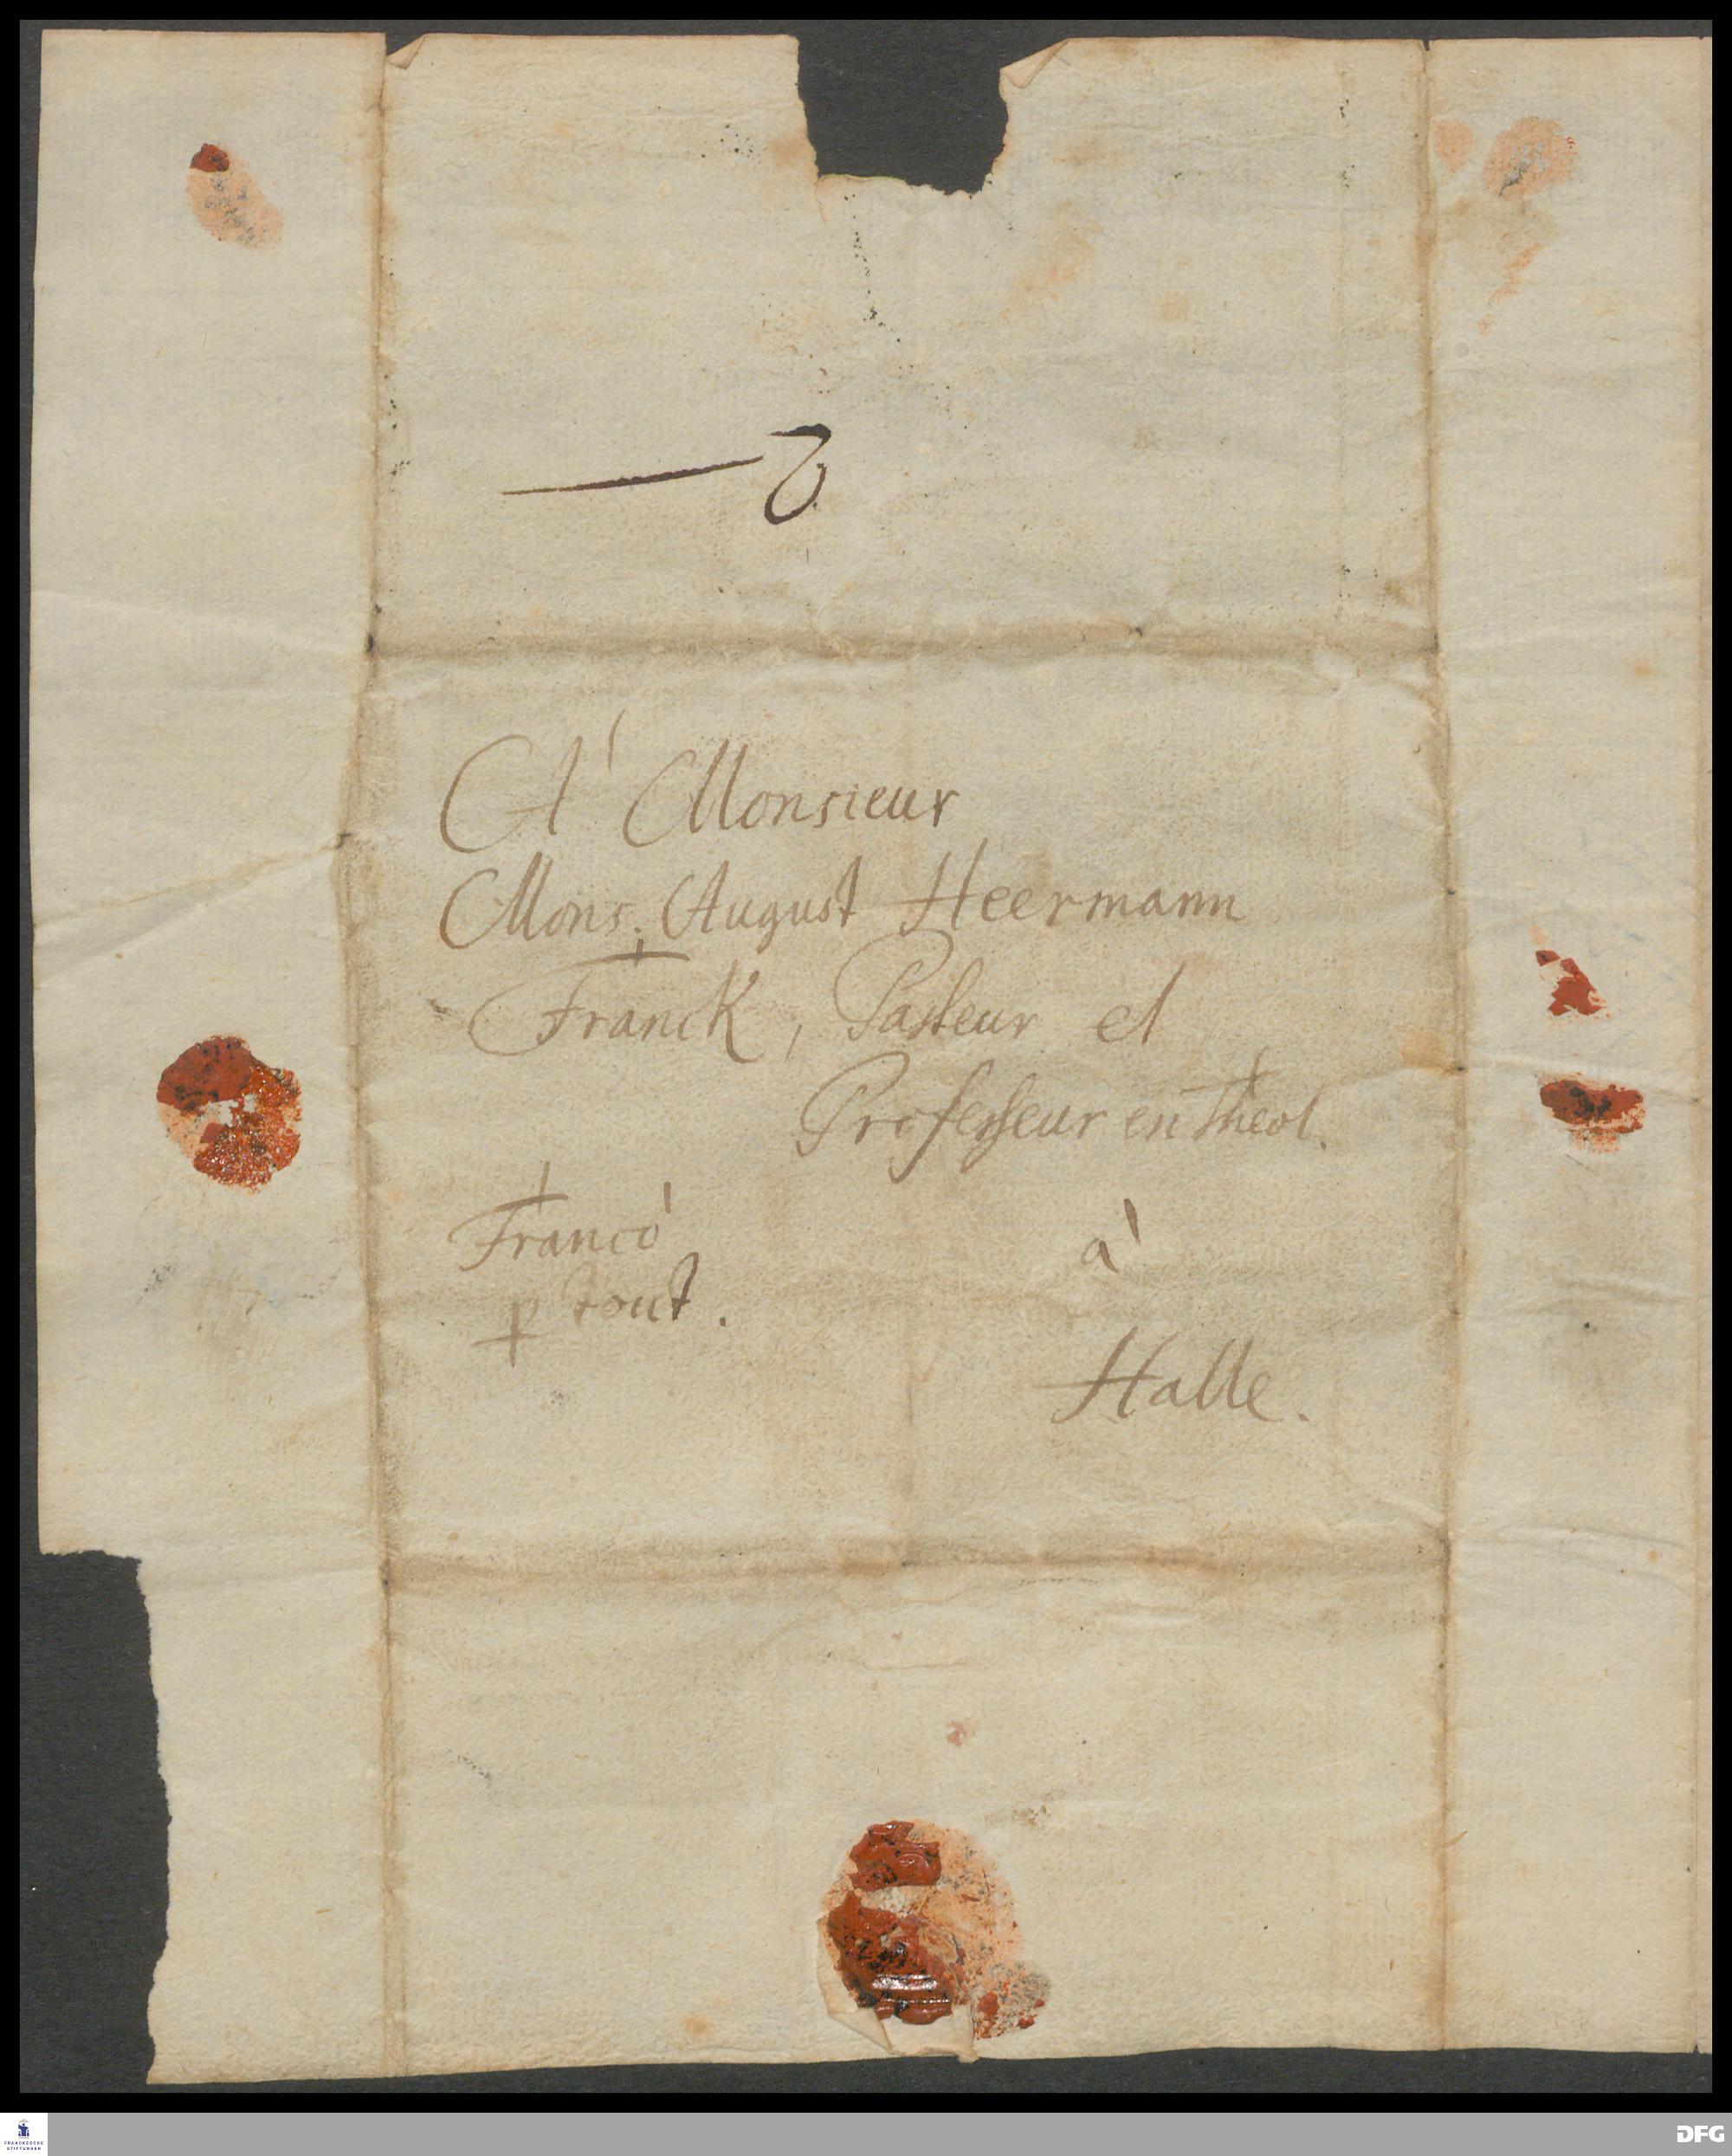 A' Monsieur
Mons. August Heermann
Franck, Pasteur et
Professeur en Theol.
Francó
p tout.
à
Halle.
FRANCKESCHE
STIFTUNGEN
DFG